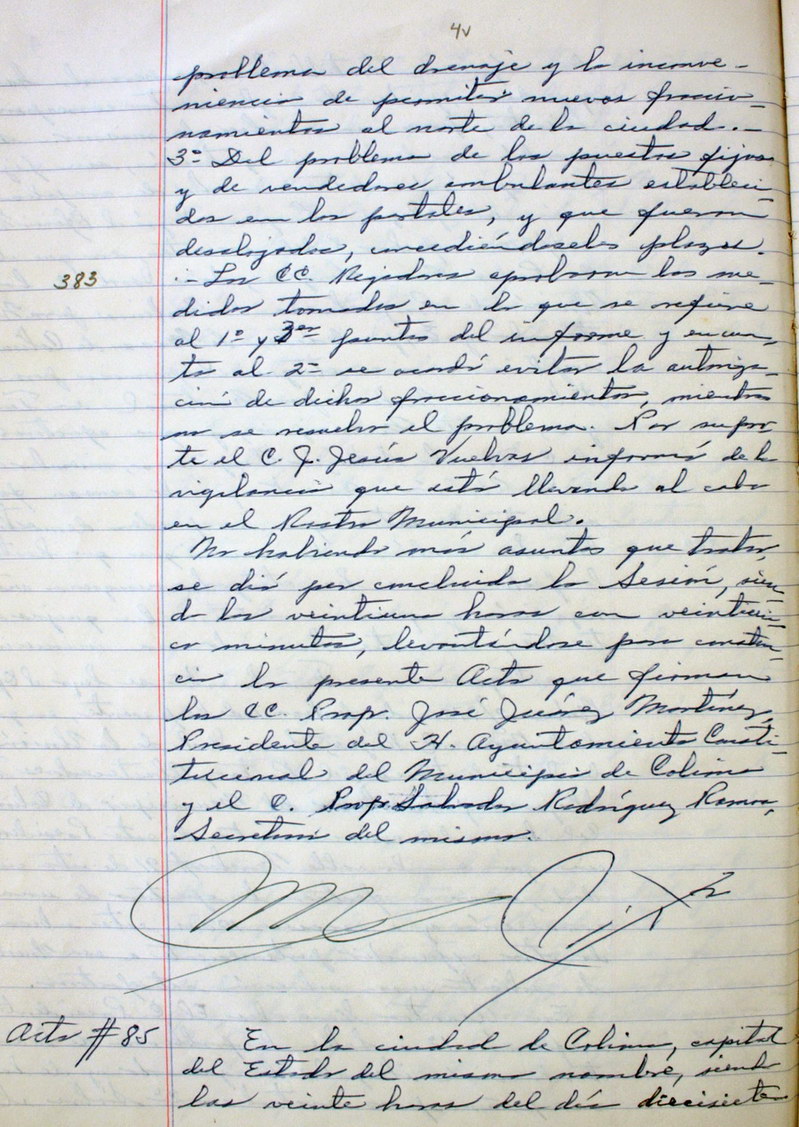 4v
problema del drenaje y la inconve-
niencia de permitir nuevos fraccio-
namientos al norte de la ciudad.-
3º Del problema de los puestos fijos
y de vendedores ambulantes estableci-
dos en los portales, y que fueron
desalojados, concediéndoseles plazos.
383
.- Los CC. Regidores aprobaron las me-
didas tomadas en lo que se refiere
al 1º y 3er puntos del informe y en cuan-
to al 2º se acordó evitar la autoriza-
ción de dichos fraccionamientos, mientras
no se resuelva el problema. Por su par-
te el C. J. Jesús Vuelvas informó de la
vigilancia que está llevando al cabo
en el Rastro Municipal.
No habiendo más asuntos que tratar,
se dió por concluida la Sesión, sien-
do las veintiuna horas con veinticin-
co minutos, levantándose para constan-
cia la presente Acta que firman
los CC. Prof. José Juárez Martínez,
Presidente del H. Ayuntamiento Consti-
tucional del Municipio de Colima
y el C. Prof. Salvador Rodríguez Ramos,
Secretario del mismo.
Acta #85
En la ciudad de Colima, capital
del Estado del mismo nombre, siendo
las veinte horas del día diecisiete